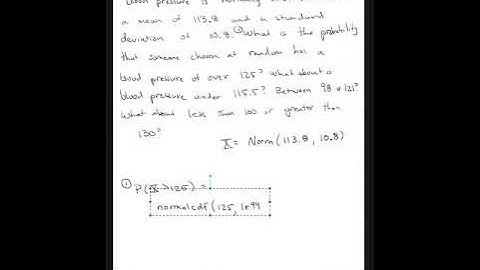 blood pressure is normally
a mean of 113.8 and a standard
deviation of 10.8. ① What is the probability
that someone chosen at random has a
blood pressure of over 125? What about a
blood pressure under 115.5? Between 98 & 121?
What about less than 100 or greater than
130?
X = Norm(113.8, 10.8)
① P(X > 125) =
normalcdf(125, 1e99